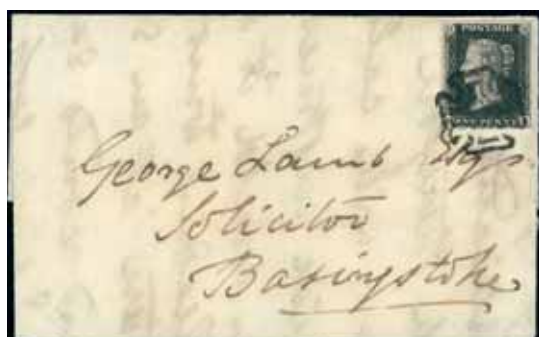 POSTAGE
ONE PENNY
George Lamb Esqr
Solicitor
Basingstoke